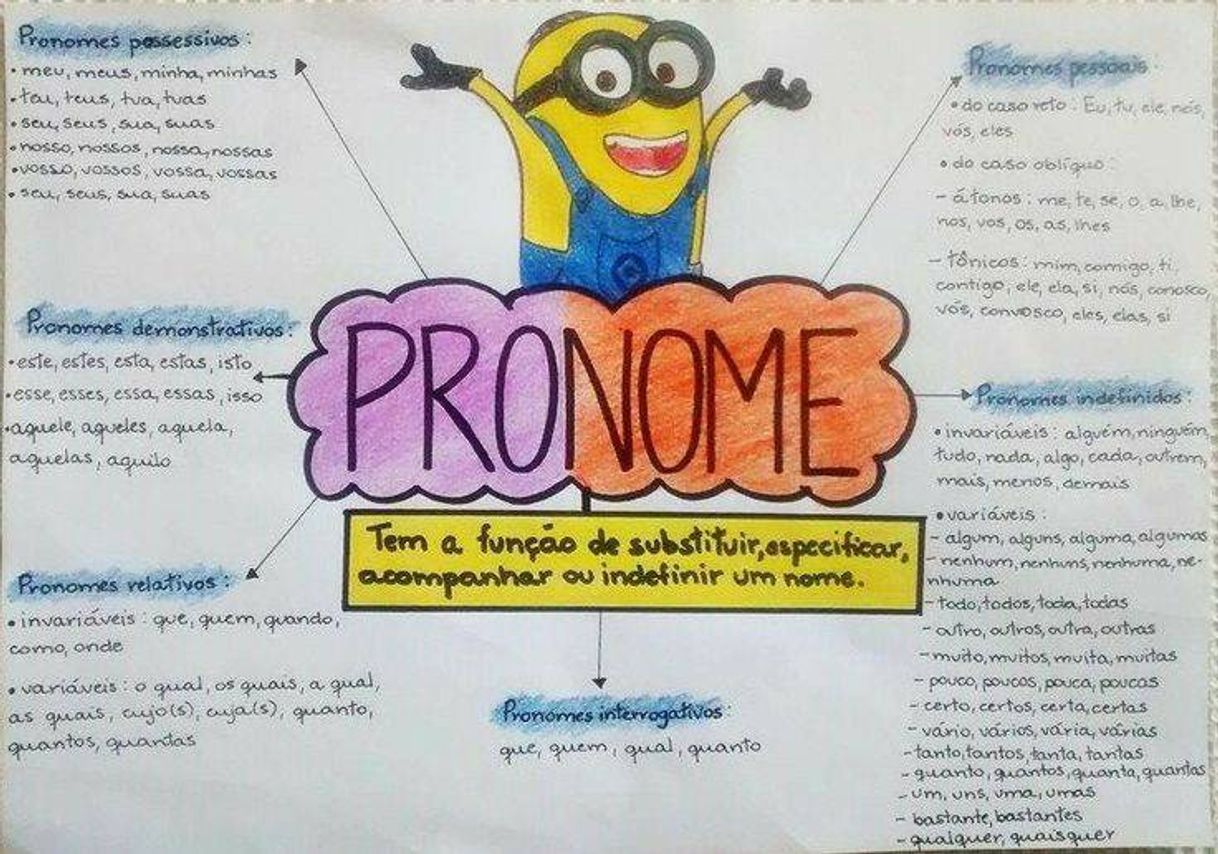 Pronomes possessivos:
• meu, meus, minha, minhas
• teu, teus, tua, tuas
• seu, seus, sua, suas
• nosso, nossos, nossa, nossas
• vosso, vossos, vossa, vossas
• seu, seus, sua, suas
Pronomes demonstrativos:
• este, estes, esta, estas, isto
• esse, esses, essa, essas, isso
• aquele, aqueles, aquela,
aquelas, aquilo
Pronomes relativos:
• invariáveis: que, quem, quando,
como, onde
• variáveis: o qual, os quais, a qual,
as quais, cujo(s), cuja(s), quanto,
quantos, quantas
G
PRONOME
Tem a função de substituir, especificar,
acompanhar ou indefinir um nome.
Pronomes interrogativos:
que, quem, qual, quanto
Pronomes pessoais:
• do caso reto: Eu, tu, ele, nós,
vós, eles
• do caso oblíquo:
- átonos: me, te, se, o, a, lhe,
nos, vos, os, as, lhes
- tônicos: mim, comigo, ti,
contigo, ele, ela, si, nós, conosco,
vós, convosco, eles, elas, si
Pronomes indefinidos:
• invariáveis: alguém, ninguém,
tudo, nada, algo, cada, outrem,
mais, menos, demais
• variáveis:
- algum, alguns, alguma, algumas
- nenhum, nenhuns, nenhuma, ne-
nhuma
- todo, todos, toda, todas
- outro, outros, outra, outras
- muito, muitos, muita, muitas
- pouco, poucos, pouca, poucas
- certo, certos, certa, certas
- vário, vários, vária, várias
- tanto, tantos, tanta, tantas
- quanto, quantos, quanta, quantas
- um, uns, uma, umas
- bastante, bastantes
- qualquer, quaisquer